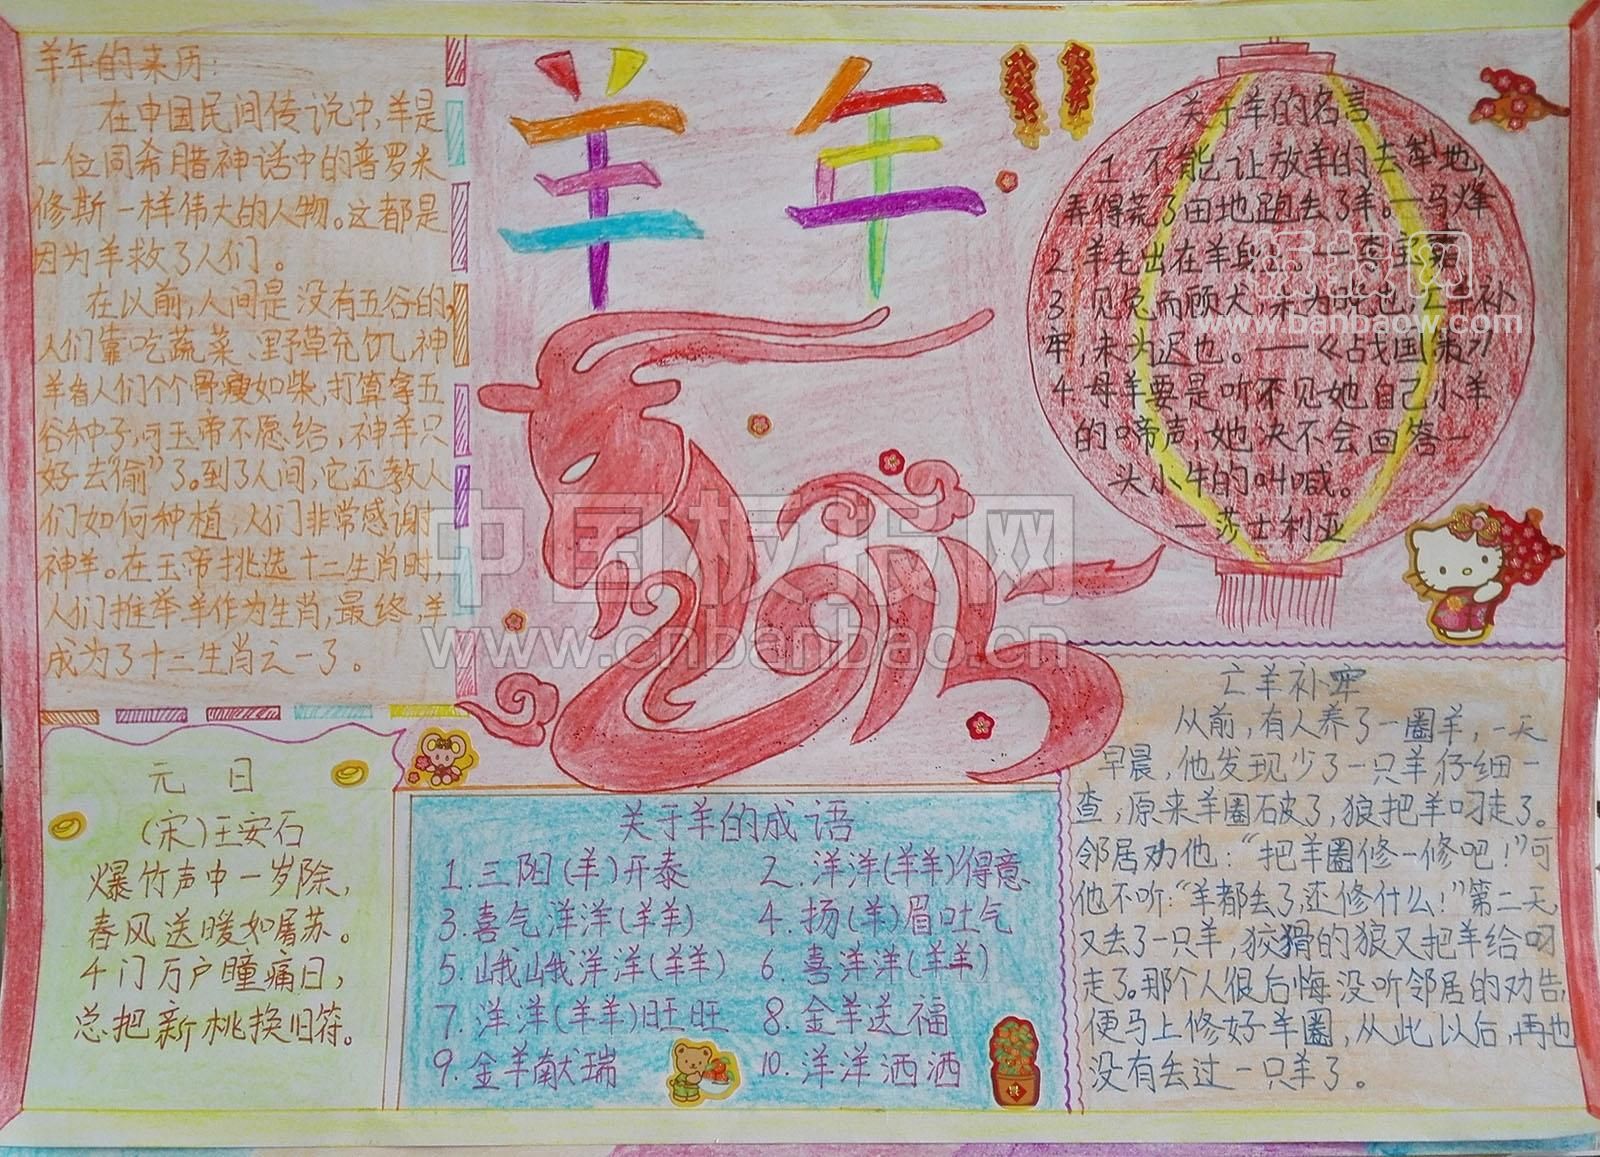 羊年的来历：
在中国民间传说中，羊是
一位同希腊神话中的普罗米
修斯一样伟大的人物。这都是
因为羊救了人们。
在以前，人间是没有五谷的，
人们靠吃蔬菜、野草充饥，神
羊看人们个个骨瘦如柴，打算拿五
谷种子，可玉帝不愿给，神羊只
好去“偷”了。到了人间，它还教人
们如何种植，人们非常感谢
神羊。在玉帝挑选十二生肖时，
人们推举羊作为生肖，最终，羊
成为了十二生肖之一了。
羊年
关于羊的名言
1 不能让放羊的去犁地，
弄得荒了田地跑去了羊。—马烽
2.羊毛出在羊身上
3.见兔而顾犬，未为晚也，亡羊补
牢，未为迟也。——《占戈国策》
4 母羊要是听不见她自己小羊
的啼声，她决不会回答一
头小牛的叫喊。
—莎士利亚
元日
(宋)王安石
爆竹声中一岁除，
春风送暖如屠苏。
千门万户瞳痛日，
总把新桃换旧符。
关于羊的成语
1.三阳(羊)开泰 2.洋洋(羊羊)得意
3.喜气洋洋(羊羊) 4.扬(羊)眉吐气
5.峨峨洋洋(羊羊) 6.喜洋洋(羊羊)
7.洋洋(羊羊)旺旺 8.金羊送福
9.金羊献瑞 10.洋洋洒洒
亡羊补牢
从前，有人养了一圈羊，一天
早晨，他发现少了一只羊仔细一
查，原来羊圈破了，狼把羊叼走了。
邻居劝他：“把羊圈修一修吧！”可
他不听：“羊都丢了，还修什么！”第二天，
又丢了一只羊，狡猾的狼又把羊给叼
走了。那个人很后悔没听邻居的劝告，
便马上修好羊圈，从此以后，再也
没有丢过一只羊了。
中国板报网
www.cnbanbao.cn
板报网
www.banbaow.com